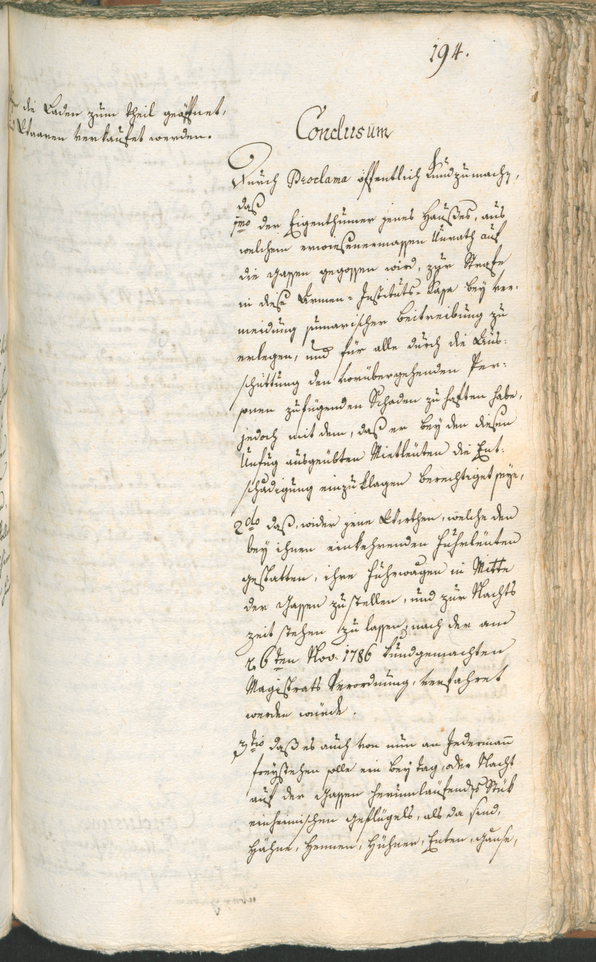 194.
die Laden zum theil geöffnet,
Waaren verkaufet werden.
Conclusum
Durch Proclama öffentlich kundzumachen,
daß
1mo der Eigenthümer jenes Haußes, aus
welchem erwiesenermassen Unrath auf
die Gassen gegossen wird, zur Strafe
in das Armen-Instituts-Kasse bey ver-
meidung sumarischer Beitreibung zu
erlegen, und für alle durch die Aus-
schüttung den vorübergehenden Per-
sonen zufügenden Schaden zu haften habe,
jedoch mit dem, daß er bey den diesen
Unfug ausgeübten Mietleuten die Ent-
schädigung einzuklagen berechtiget seye,
2do daß, wider jene Wirthen, welche den
bey ihnen einkehrenden Fuhrleuten
gestatten, ihre Fuhrwägen in Mitte
der Gassen zu stellen, und zur Nachts
zeit stehen zu lassen, nach der am
26ten Nov. 1786 kundgemachten
Magistrats Verordnung, verfahret
werden würde.
3tio daß es auch von nun an Jedermann
freystehen solle ein bey tag, oder Nacht
auf der Gassen herumlaufendes Stük
einheimischen Geflügels, als da sind,
Hähne, Hennen, Hühner, Enten, Gänse,